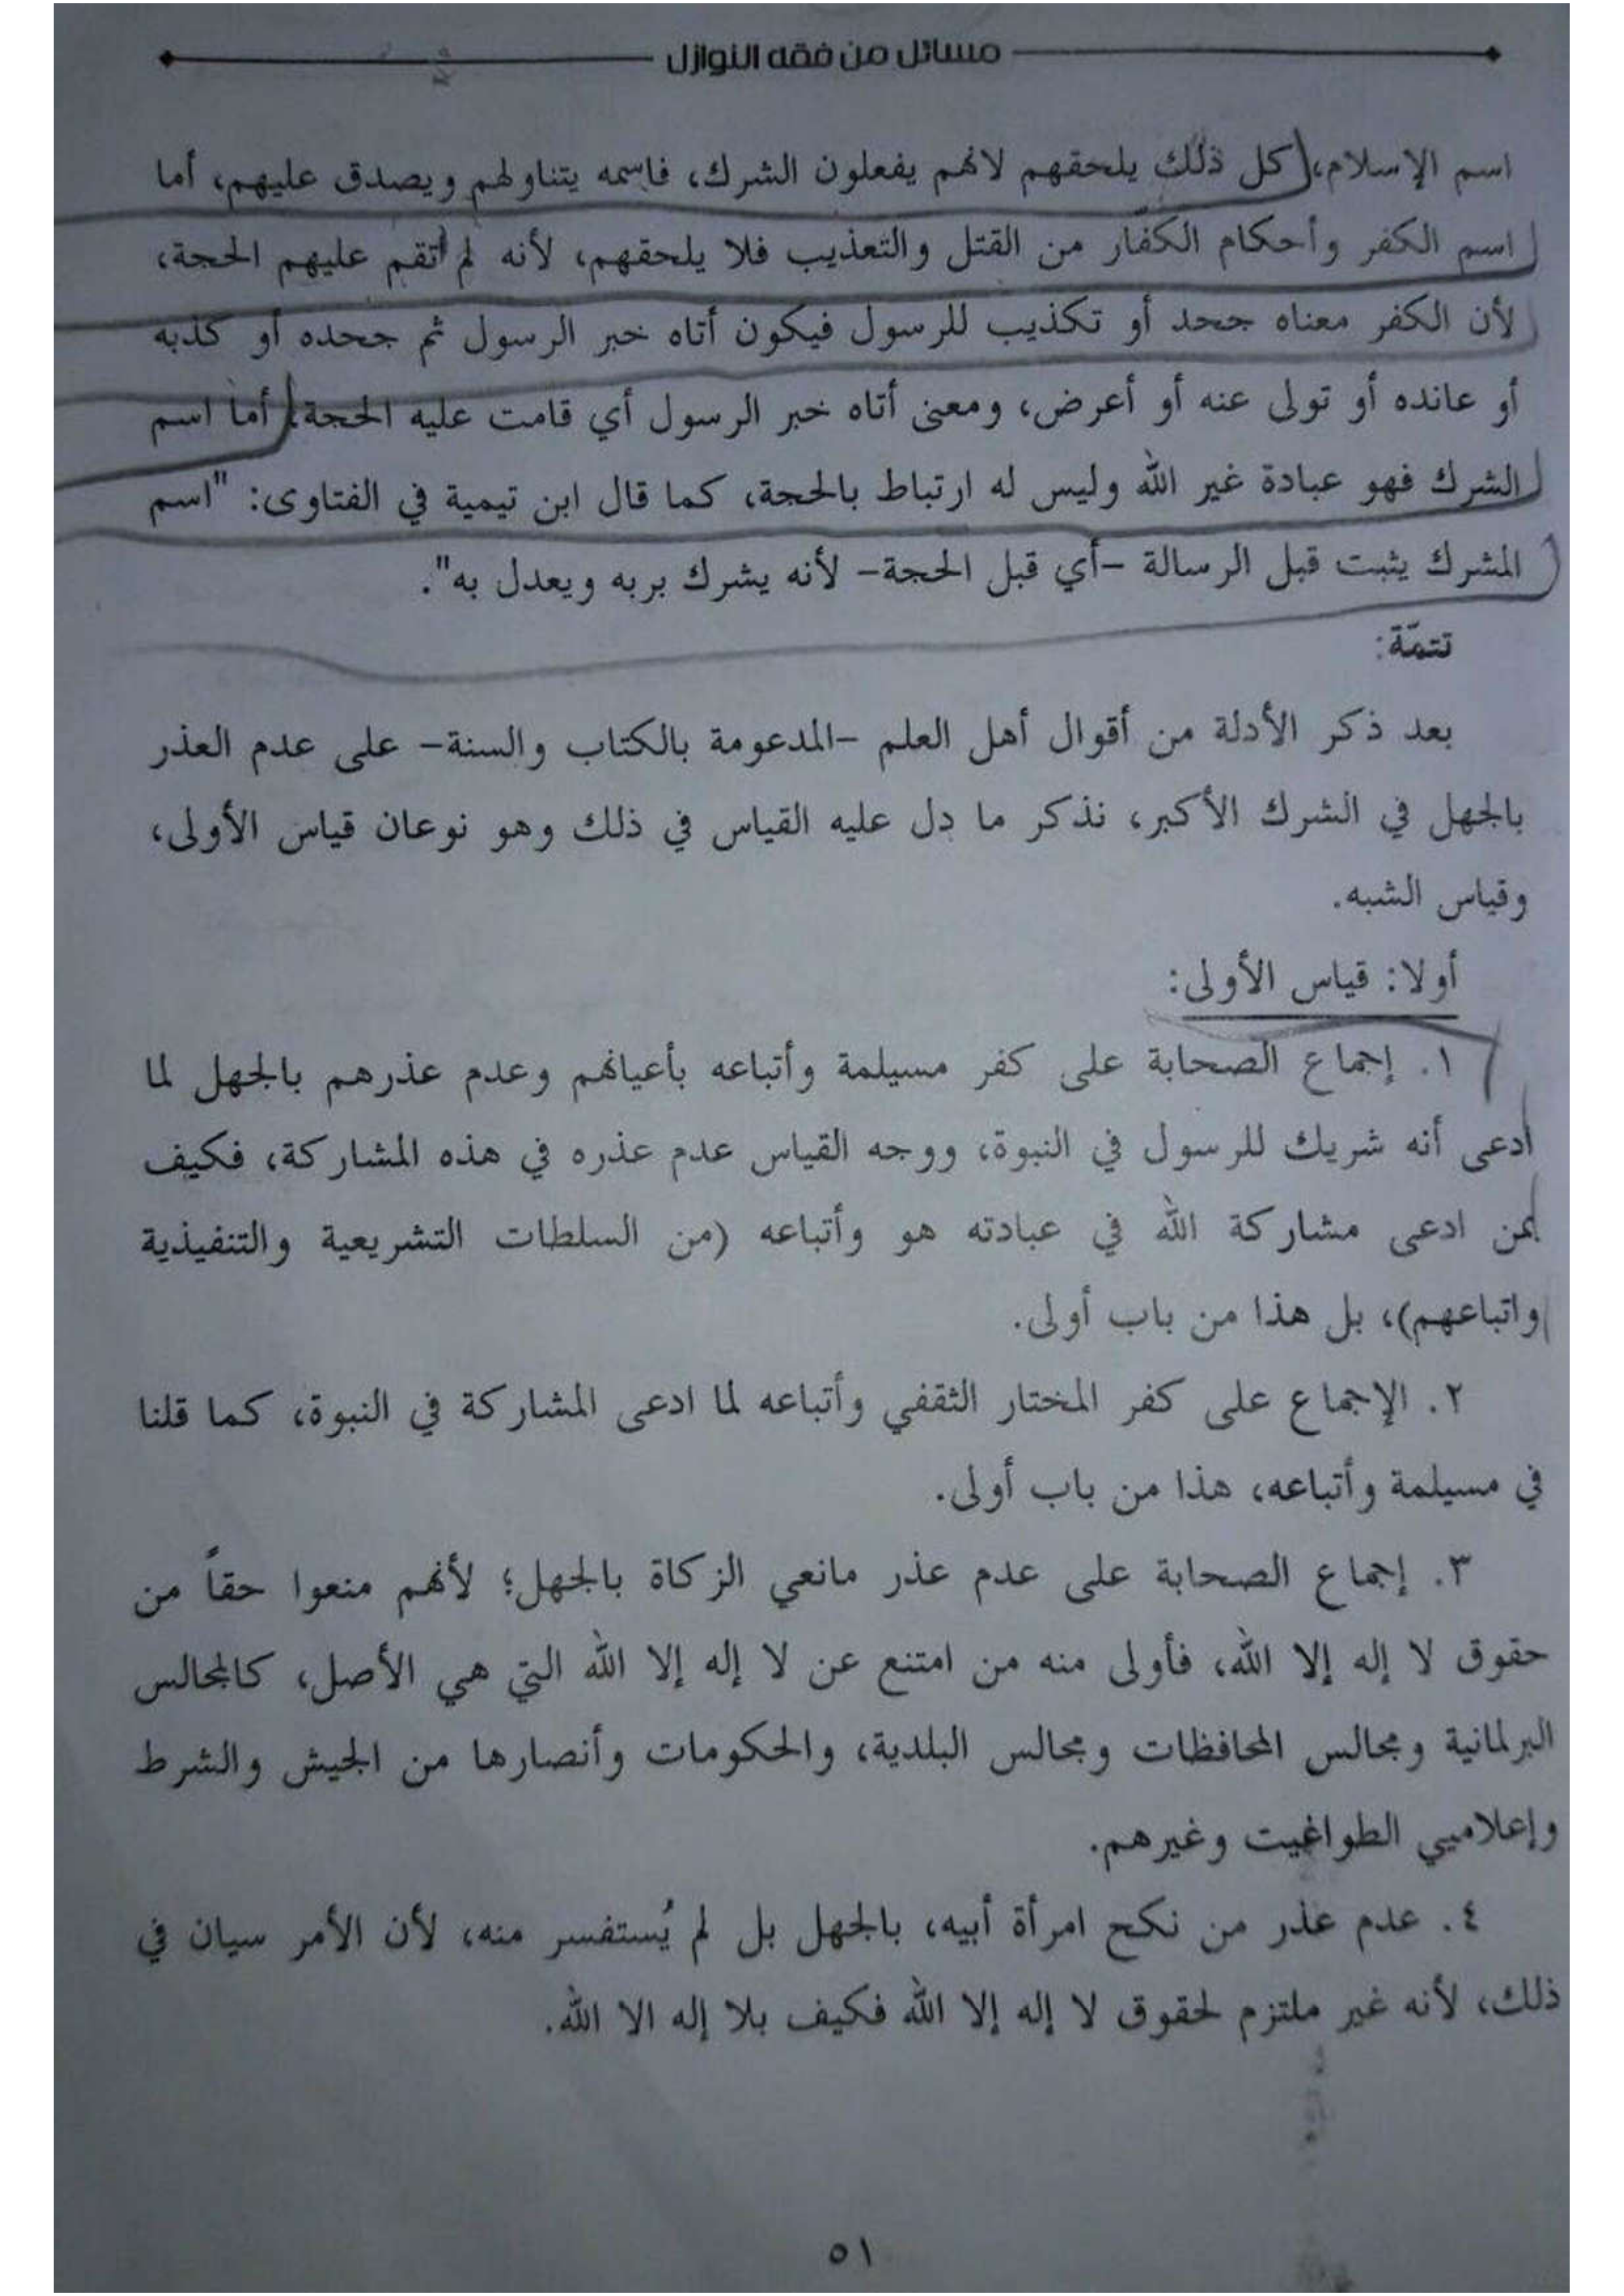 مسائل من فقه النوازل
اسم الإسلام، كل ذلك يلحقهم لانهم يفعلون الشرك، فاسمه يتناولهم ويصدق عليهم، أما
اسم الكفر وأحكام الكفّار من القتل والتعذيب فلا يلحقهم، لأنه لم تقم عليهم الحجة،
لأن الكفر معناه جحد أو تكذيب للرسول فيكون أتاه خبر الرسول ثم جحده أو كذبه
أو عانده أو تولى عنه أو أعرض، ومعنى أتاه خبر الرسول أي قامت عليه الحجة، أما اسم
الشرك فهو عبادة غير الله وليس له ارتباط بالحجة، كما قال ابن تيمية في الفتاوى: "اسم
المشرك يثبت قبل الرسالة -أي قبل الحجة- لأنه يشرك بربه ويعدل به".
تتمّة:
بعد ذكر الأدلة من أقوال أهل العلم -المدعومة بالكتاب والسنة- على عدم العذر
بالجهل في الشرك الأكبر، نذكر ما دل عليه القياس في ذلك وهو نوعان قياس الأولى،
وقياس الشبه.
أولا: قياس الأولى:
١. إجماع الصحابة على كفر مسيلمة وأتباعه بأعيانهم وعدم عذرهم بالجهل لما
أدعى أنه شريك للرسول في النبوة، ووجه القياس عدم عذره في هذه المشاركة، فكيف
بمن ادعى مشاركة الله في عبادته هو وأتباعه (من السلطات التشريعية والتنفيذية
واتباعهم)، بل هذا من باب أولى.
٢. الإجماع على كفر المختار الثقفي وأتباعه لما ادعى المشاركة في النبوة، كما قلنا
في مسيلمة وأتباعه، هذا من باب أولى.
٣. إجماع الصحابة على عدم عذر مانعي الزكاة بالجهل؛ لأنهم منعوا حقاً من
حقوق لا إله إلا الله، فأولى منه من امتنع عن لا إله إلا الله التي هي الأصل، كالمجالس
البرلمانية ومجالس المحافظات ومجالس البلدية، والحكومات وأنصارها من الجيش والشرط
وإعلاميي الطواغيت وغيرهم.
٤. عدم عذر من نكح امرأة أبيه، بالجهل بل لم يُستفسر منه، لأن الأمر سيان في
ذلك، لأنه غير ملتزم لحقوق لا إله إلا الله فكيف بلا إله الا الله.
٥١